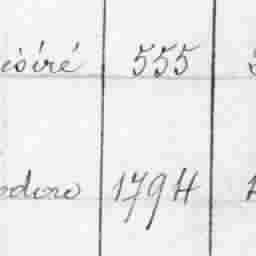 ésiré 555
odoro 1794